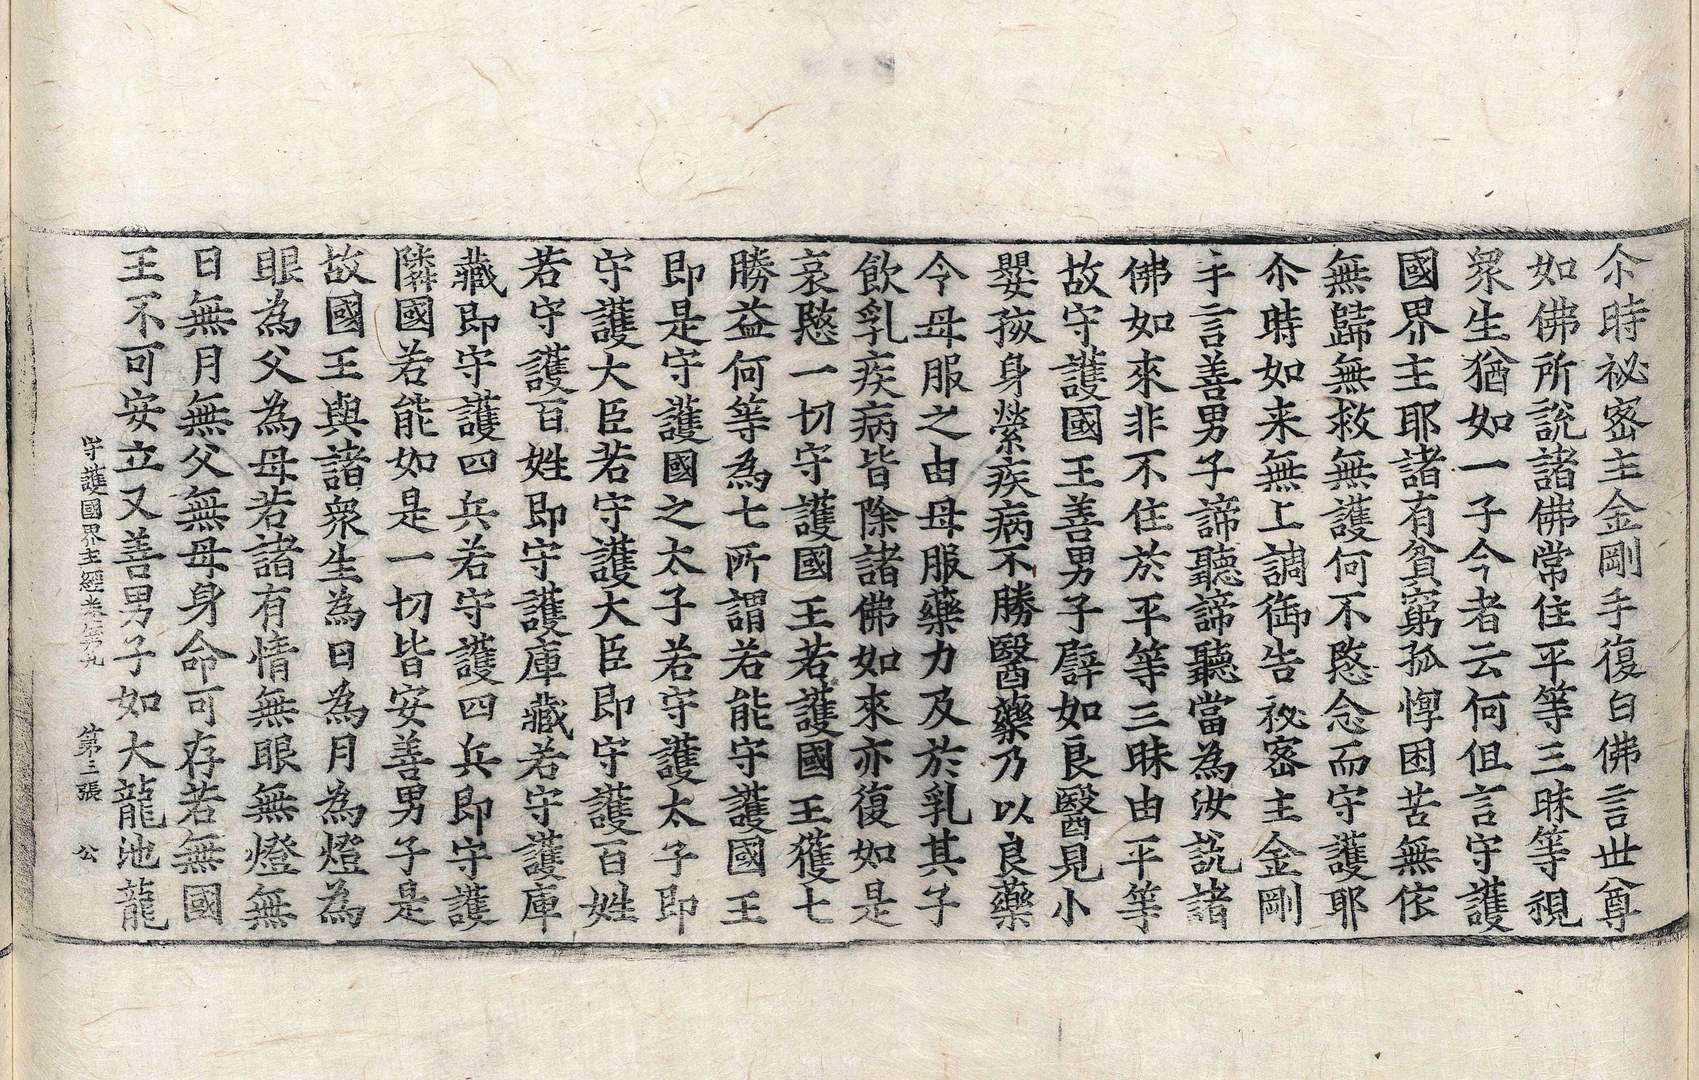 尒時祕宻主金剛手復白佛言世尊
如佛所説諸佛常住平等三昧等視
衆生猶如一子今者云何但言守護
國界主耶諸有貧窮孤惸困苦無依
無歸無救無護何不愍念而守護耶
尒時如来無上調御告祕宻主金剛
手言善男子諦聽諦聽當為汝説諸
佛如來非不住於平等三昧由平等
故守護國王善男子譬如良醫見小
嬰孩身縈疾病不勝醫藥乃以良藥
令母服之由母服藥力及於乳其子
飲乳疾病皆除諸佛如來亦復如是
哀愍一切守護國王若護國王獲七
勝益何等為七所謂若能守護國王
即是守護國之太子若守護太子即
守護大臣若守護大臣即守護百姓
若守護百姓即守護庫藏若守護庫
藏即守護四兵若守護四兵即守護
隣國若能如是一切皆安善男子是
故國王與諸衆生為日為月為燈為
眼為父為母若諸有情無眼無燈無
日無月無父無母身命可存若無國
王不可安立又善男子如大龍池龍
守護國界主經卷第九 第三張 公